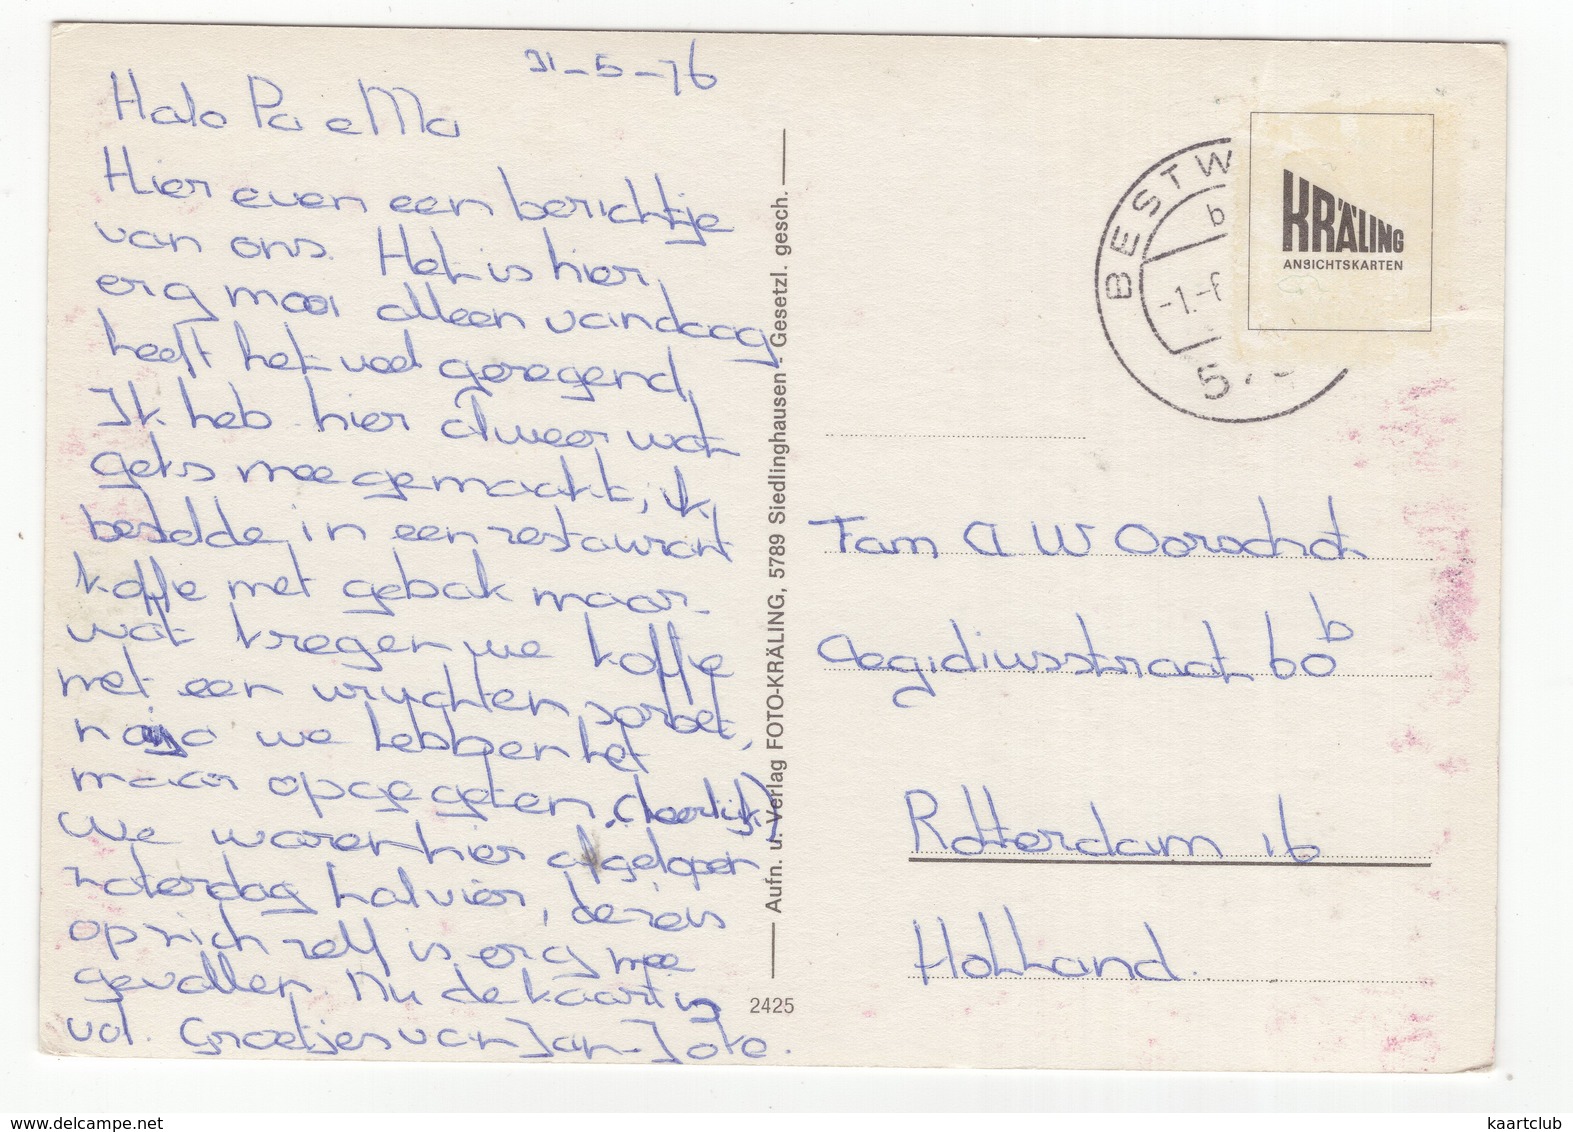 31-5-76
Halo Pa e Ma
Hier even een berichtje
van ons. Het is hier
erg mooi alleen vandaag
heeft het veel geregend,
Ik heb hier alweer wat
geks meegemaakt, ik
bestelde in een restaurant
koffie met gebak maar
wat kregen we koffie
met een vruchten sorbet,
we hebben het
maar opgegeten, (heerlijk)
We waren hier afgelopen
zaterdag half vier, de reis
op zich zelf is erg mee
gevallen. Nu de kaart is
vol. Groetjes van Jan-Joke.
Aufn. u. Verlag FOTO-KRÄLING, 5789 Siedlinghausen - Gesetzl. gesch.
2425
BESTW
b
-1.-6
57
KRÄLING
ANSICHTSKARTEN
Fam A W Oorschot
Aegidiusstraat 60 b
Rotterdam 16
Holland.
kaartclub